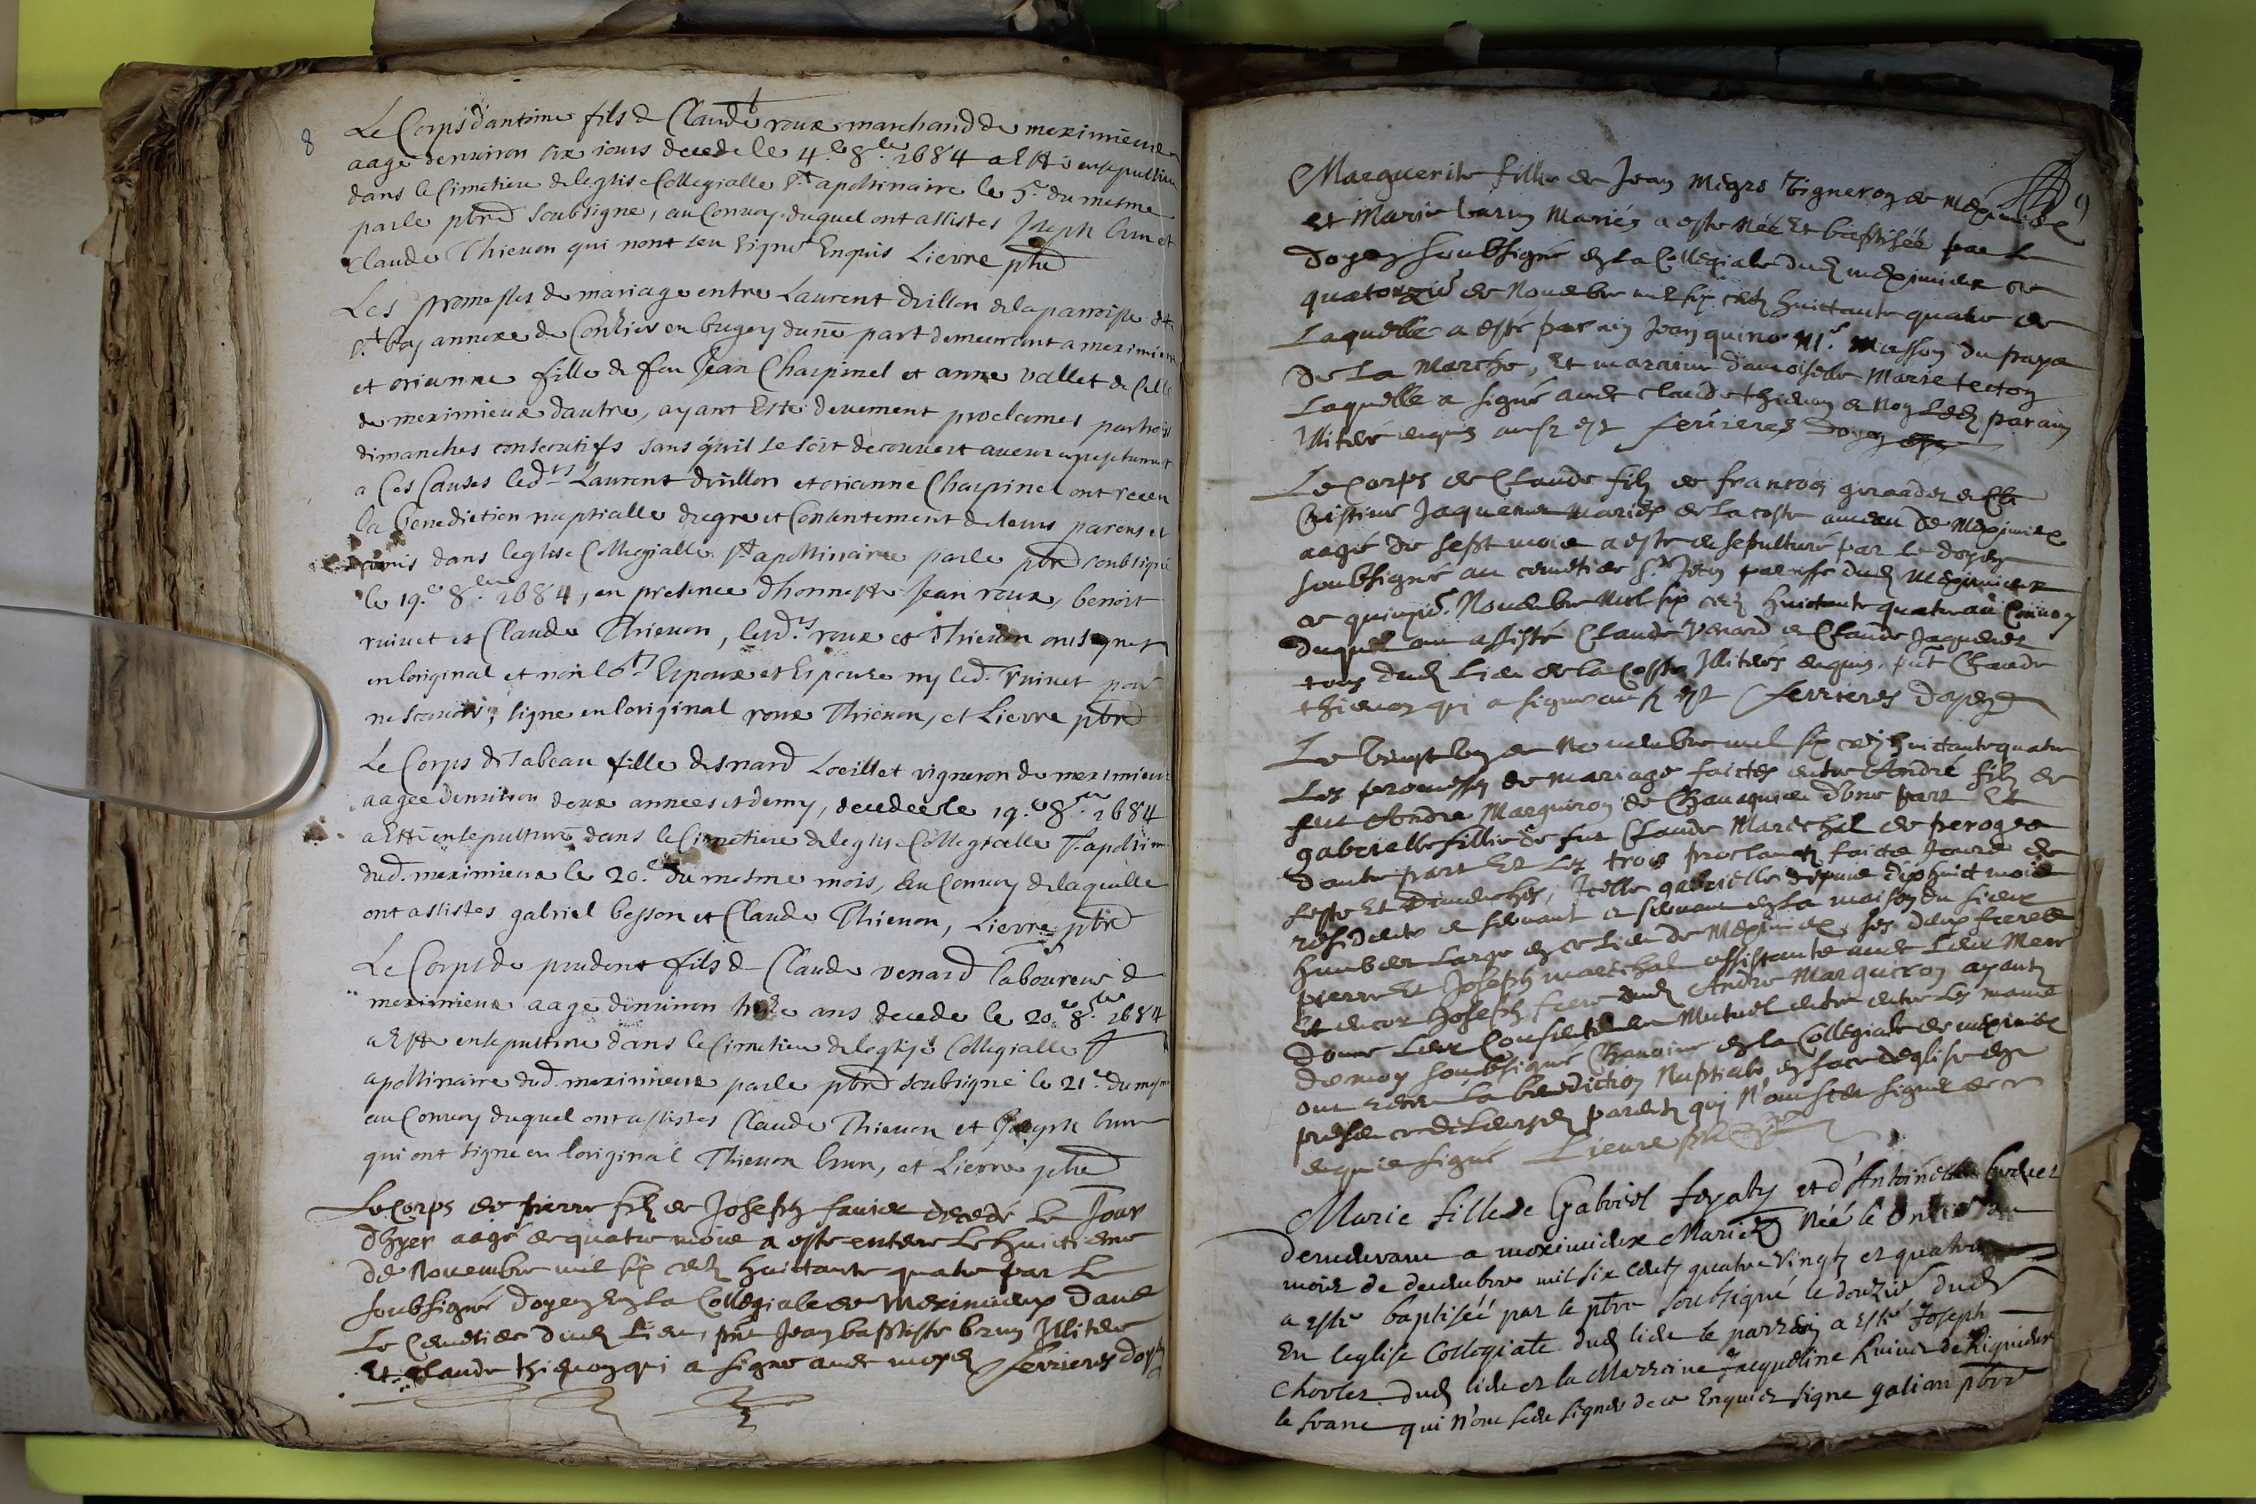 8
Le Corps d'antoine fils de Claude roux marchand de meximieux
aagé denuiron six iours decede le 4.e 8.bre 1684 a esté ensepulturé
dans le Cimetiere de leglise Collegialle St apollinaire le 5.e du mesme
par le pbre soubsigne, au Convoy duquel ont assistes Joseph brun et
Claude Thieuon qui nont seu signer Enquis Lievre pbre
Les promesses de mariage entre Laurent drillon de la parroisse de
St boy annexe de Conzieu en bugey dune part demeurant a meximieux
et orianne fille de feu Jean Charpinel et anne vallet de Celle
de meximieux dautre, ayant Esté deuement proclames par trois
dimanches consecutifs sans quil se soit decouvert aucun empeschement
a Ces Causes led.ts Laurent drillon et orianne Charpinel ont receu
la benediction nuptialle du gre et Consentement de leurs parens et
amis dans leglise Collegialle St apollinaire par le pbre soubsigné
le 19.e 8.bre 1684, en presence d'honneste Jean roux, benoit
ruinet et Claude Thieuon, lesd.ts roux et Thieuon ont signet
en loriginal et non les.ts Espoux et Espouse ny led. ruinet pour
ne scauoir, signe en loriginal roux Thieuon, et Lievre pbre
Le Corps d'Isabeau fille desnard Loeillet vigneron de meximieux
aagee denuiron deux annees et demy, decedee le 19.e 8.bre 1684
a esté ensepulture dans le Cimetiere de leglise Collegialle St apolinaire
dud. meximieux le 20.e du mesme mois, au Convoy de laquelle
ont assistes gabriel besson et Claude Thieuon, Lievre pbre
Le Corps de prudent fils de Claude venard laboureur de
meximieux aagé denuiron ans decede le 20.e 8.bre 1684
a esté ensepulture dans le Cimetiere de leglise Collegialle St
apollinaire dud. meximieux par le pbre soubsigné le 21.e du mesme
au Convoy duquel ont assistes Claude Thieuon et Joseph brun
qui ont signe en loriginal Thieuon brun, et Lievre pbre
Le Corps de pierre filz de Joseph fauier decede le Jour
d'hyer aagé de quatre mois a este enterre le huictieme
de Novembre mil six centz huictante quatre par le
soubsigné doyen en la Collegiale de Meximieux dans
le Cemetiere dud lieu, pnt Jean baptiste brun Illiteré
et Claude thieuon qui a signe auec moy Ferrieres doyen
9
Marguerite fille de Jean Migro vigneron de Meximieux
et Marie varin Mariés a esté née et baptisée par le
doyen soubsigné en la Collegiale dud meximieux ce
quatorzie de Nouembre mil six centz huictante quatre de
laquelle a esté parrain Jean quino M.e Masson du pays
de la Marche, et maraine damoiselle Marie tecton
laquelle a signé auec claude thieuon et non led parain
Illiteré enquis ainsy est Ferrieres doyen
Le Corps de Claude filz de francois girardet et de
Cristine Jaquemet mariés de la coste ameau de Meximieux
aagé de sept mois a esté ensepulturé par le doyen
soubsigné au cemetiere St Jean parroisse dud Meximieux
ce quinzie. Nouembre mil six centz huictante quatre au Convoy
duquel ont assisté Claude Venard et Claude Jaquemet
tous dud lieu de la coste Illiterés enquis, pnt Claude
thieuon qui a signe ainsy est Ferrieres doyen
Le vingt de Nouembre mil six centz huictante quatre
Les promesses de mariage faictes entre André filz de
feu Andre Marguiron de d'une part Et
gabrielle fillie de feu Claude Marechal de peroges
dautre part Et les trois proclamations faictes Jours de
feste Et dimanches, Icelle gabrielle depuis dixhuict mois
residente et seruant en la maison du sieur
humbert Large en ce lieu de Meximieux, ses deux freres
pierre Et Joseph marechal assistants auec leur Mere
Et encor Joseph frere dud Andre Marguiron ayantz
donne leur Consentement Mutuel entre les mains
de moy soubsigné Chanoine en la Collegiale de meximieux
ont receu la benediction Nuptiale en face d'eglise en
presence de leursd parentz qui N'ont sceu signer de ce
enquis signé Lieure pbre
Marie fille de Gabriel feyaty et d'Antoinette
demeurans a meximieux Mariés Née le onzie du
mois de decembre mil six centz quatre vingtz et quatre
a esté baptiséé par le pbre soubsigné le douzie dud
en leglise Collegiate dud lieu le parrein a esté Joseph
Charles dud lieu et la Marreine Jacqueline Ruinet de Rigneux
le franc qui n'ont sceu signer de ce Enquis signe galian pbre